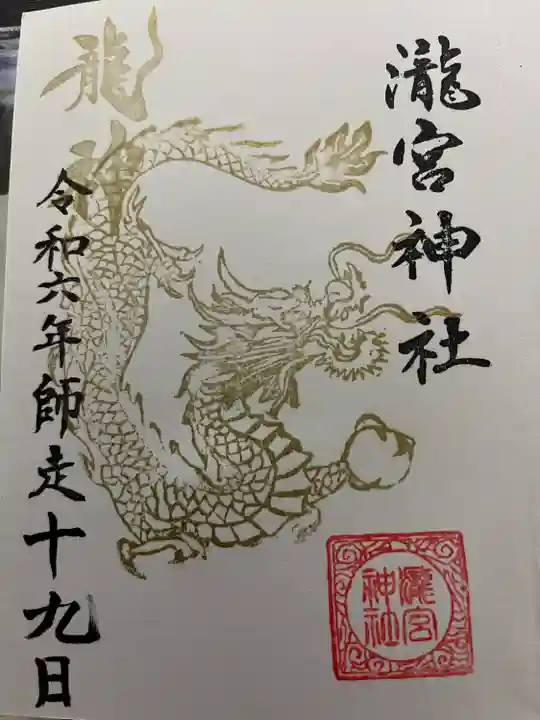 瀧宮神社
龍神
令和六年師走十九日
瀧宮
神社